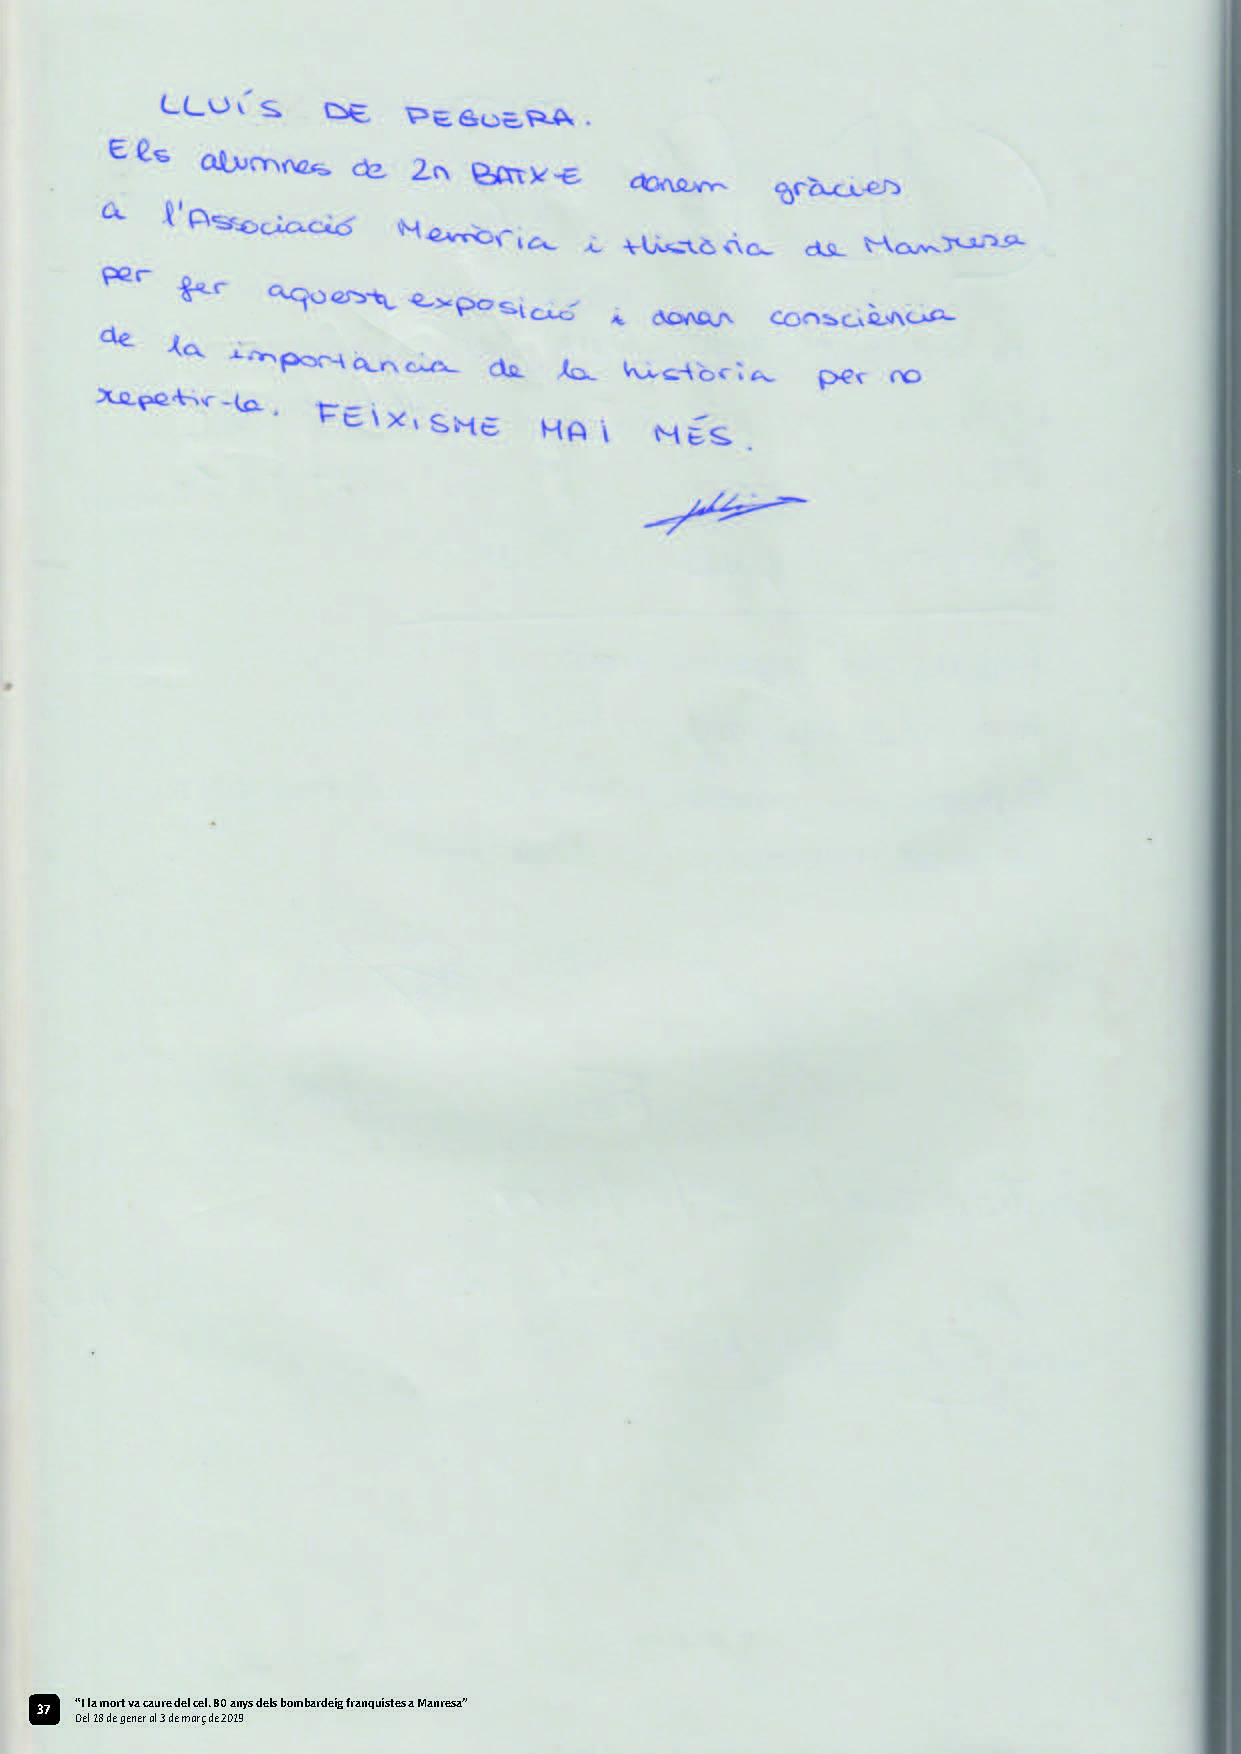 LLUÍS DE PEGUERA.
Els alumnes de 2n BATX-E donem gràcies
a l'Associació Memòria i Història de Manresa
per fer aquesta exposició i donar consciència
de la importància de la història per no
repetir-la. FEIXISME MAI MÉS.
37
"I la mort va caure del cel. 80 anys dels bombardeig franquistes a Manresa"
Del 18 de gener al 3 de març de 2019